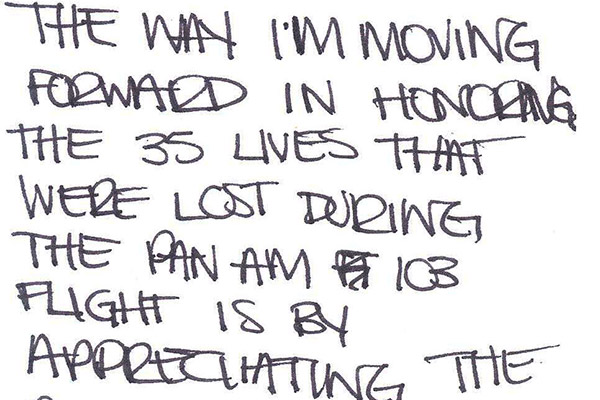 THE WAY I'M MOVING
FORWARD IN HONORING
THE 35 LIVES THAT
WERE LOST DURING
THE PAN AM 103
FLIGHT IS BY
APPRECIATING THE